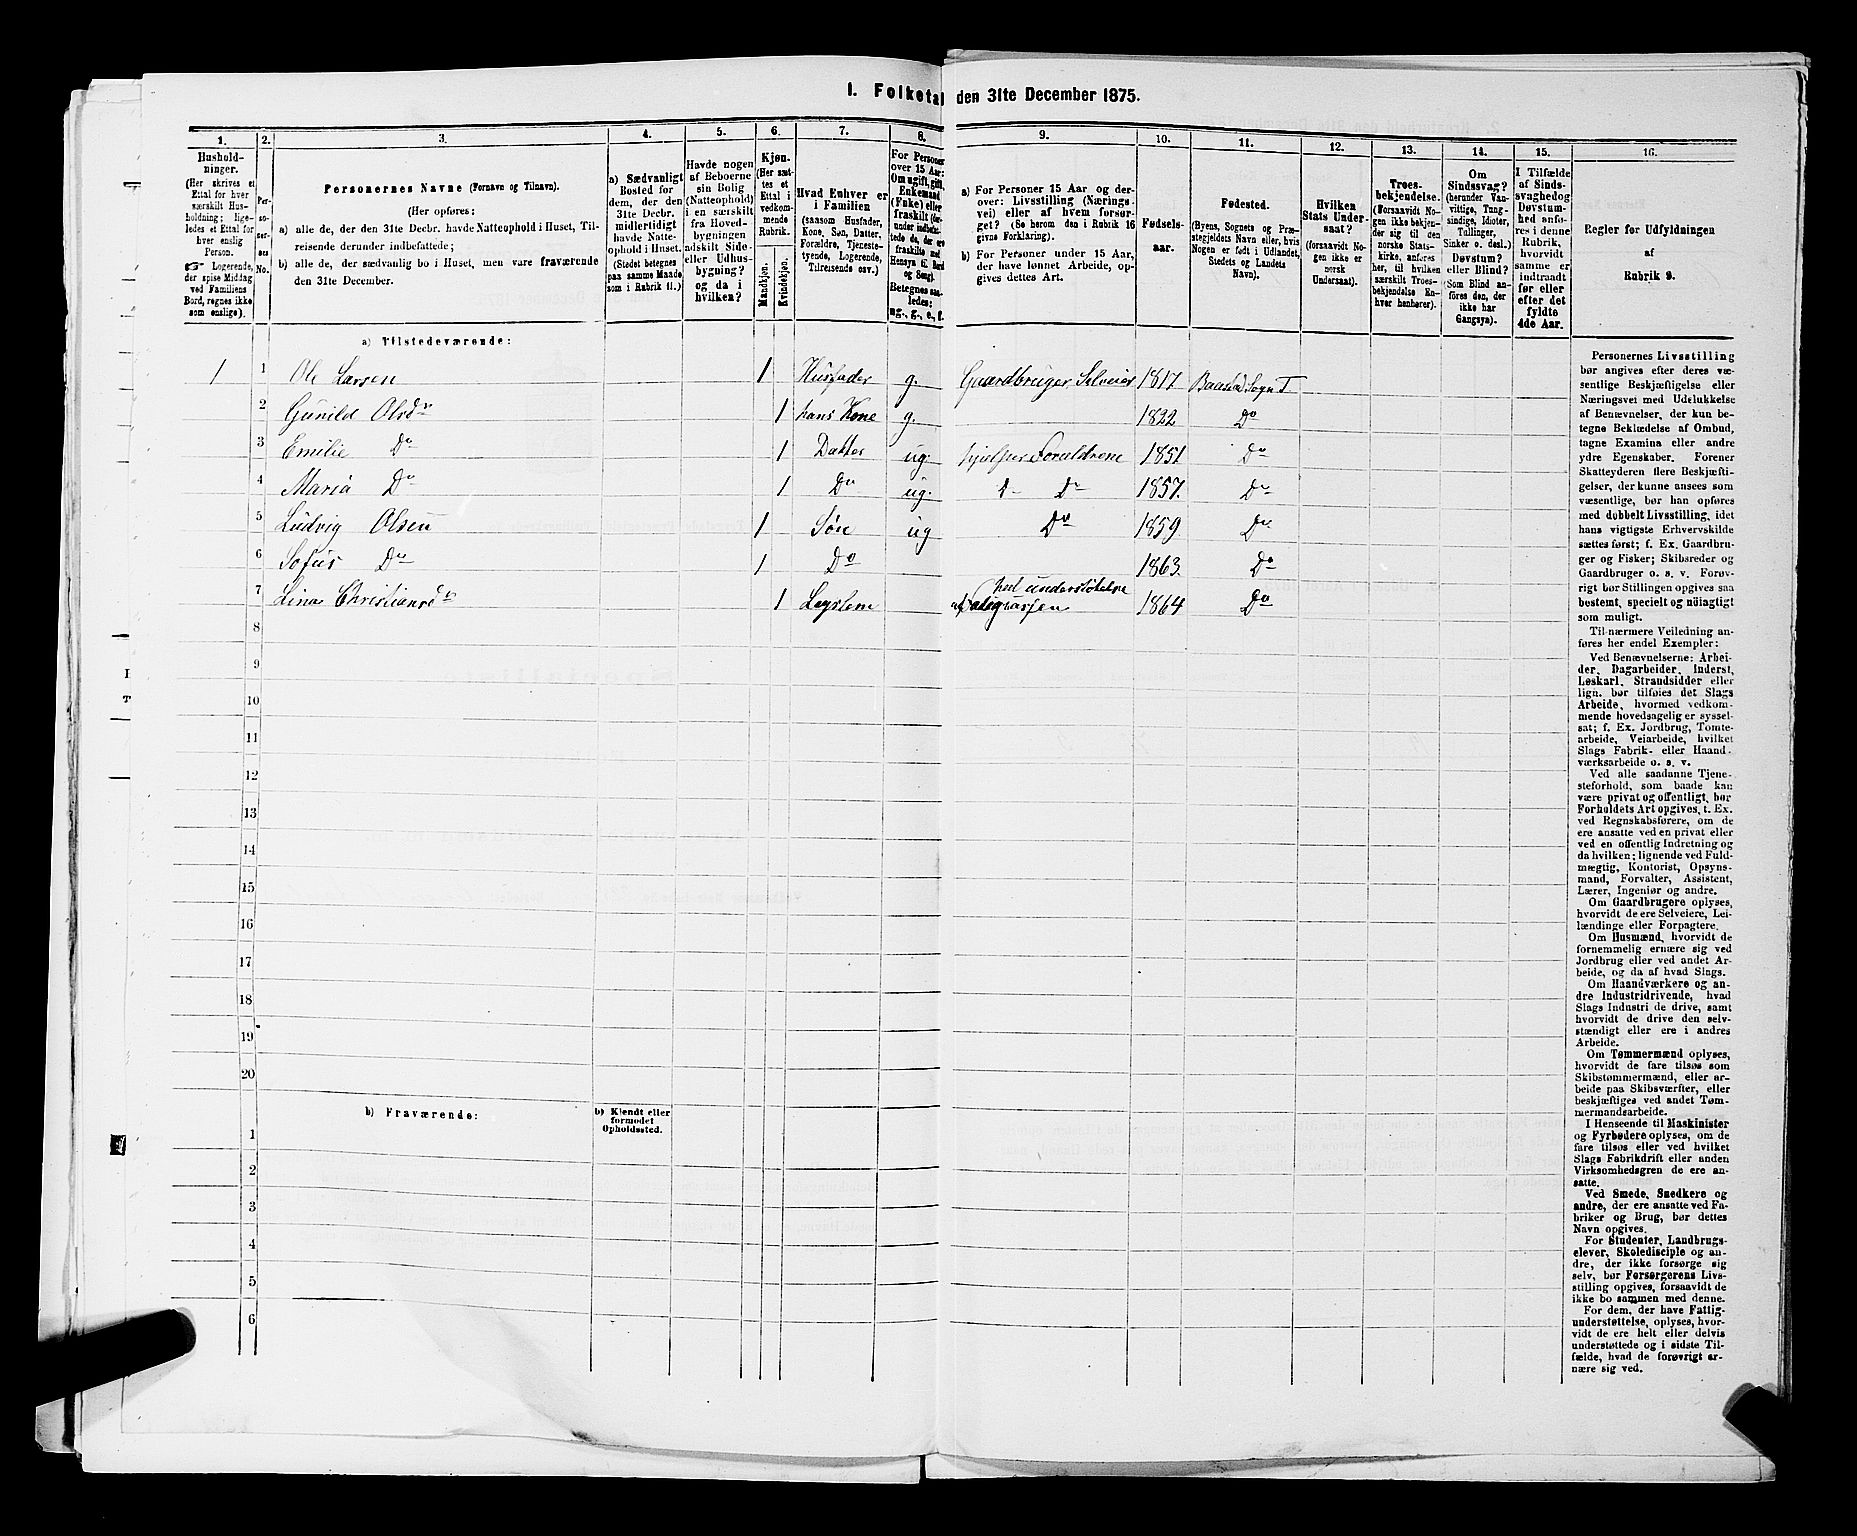 I. Folketal den 31te December 1875.
1. 2. 3. 4. 5. 6. 7. 8. 9. 10. 11. 12. 13. 14. 15. 16.
Hushold-
ninger.
(Her skrives et
Ettal for hver
særskilt Hus-
holdning; lige-
ledes et Ettal for
hver enslig
Person.
☞ Logerende,
der spise Middag
ved Familiens
Bord, regnes ikke
som enslige).
Per-
so-
ner-
nes
No.
Personernes Navne (Fornavn og Tilnavn).
(Her opføres:
a) alle de, der den 31te Decbr. havde Natteophold i Huset, Til-
reisende derunder indbefattede;
b) alle de, der sædvanlig bo i Huset, men vare fraværende
den 31te December.
a) Sædvanligt
Bosted for
dem, der den
31te Decbr.
midlertidigt
havde Natte-
ophold i Huset.
(Stedet betegnes
paa samme Maade,
som i Rubrik 11.)
Havde nogen
af Beboerne
sin Bolig
(Natteophold)
i en særskilt
fra Hoved-
bygningen
adskilt Side-
eller Udhus-
bygning?
og da i
hvilken?
Kjøn.
(Her sæt-
tes et
Ettal i
vedkom-
mende
Rubrik.
Mandkjøn.
Kvindekjøn.
Hvad Enhver er
i Familien
(saasom Husfader,
Kone, Søn, Datter,
Forældre, Tjeneste-
tyende, Logerende,
Tilreisende osv.)
For Personer
over 15 Aar:
Om ugift, gift,
Enkemand
(Enke) eller
fraskilt (der-
under indbefat-
tede de, der ere
fraskilte med
Hensyn til Bord
og Seng).
Betegnes saa-
ledes:
ug., g., e., f.
a) For Personer 15 Aar og der-
over: Livsstilling (Nærings-
vei) eller af hvem forsør-
get? (Se herom den i Rubrik 16
givne Forklaring).
b) For Personer under 15 Aar,
der have lønnet Arbeide, op-
gives dettes Art.
Fødsels-
aar.
Fødested.
(Byens, Sognets og Præ-
stegjeldets Navn eller, hvis
Nogen er født i Udlandet,
Stedets og Landets
Navn).
Hvilken
Stats Under-
saat?
(forsaavidt No-
gen ikke er
norsk
Undersaat).
Troes-
bekjendelse.
(Forsaavidt No-
gen ikke bekjen-
der sig til den
norske Stats-
kirke, anføres
her, til hvilken
særskilt Troes-
bekjendelse En-
hver henhører).
Om
Sindssvag?
(herunder Van-
vittige, Tung-
sindige, Idioter,
Tullinger,
Sinker o. desl.)
Døvstum?
eller Blind?
(Som Blind an-
føres den, der
ikke har
Gangsyn).
I Tilfælde
af Sinds-
svaghed og
Døvstum-
hed anfø-
res i denne
Rubrik,
hvorvidt
samme er
indtraadt
før eller
efter det
fyldte
4de Aar.
Regler for Udfyldningen
af
Rubrik 9.
a) Tilstedeværende:
1 1 Ole Larsen 1 Husfader g. Gaardbruger, Selveier 1817 Baastad Sogn T
2 Gunild Olsdr 1 hans Kone g. 1822 Do
3 Emilie Do 1 Datter ug. hjelper Foreldrene 1851 Do
4 Maria Do 1 Do ug. Do 1857. Do
5 Ludvig Olsen 1 Søn ug Do 1859. Do
6 Sofus Do 1 Do 1863. Do
7 Lina Christiansdr 1 af 1864 Do
8
9
10
11
12
13
14
15
16
17
18
19
20
b) Fraværende:
b) Kjendt eller
formodet
Opholdssted.
1
2
3
4
5
6
Personernes Livsstilling
bør angives efter deres væ-
sentlige Beskjæftigelse eller
Næringsvei med Udelukkelse
af Benævnelser, der kun be-
tegne Beklædelse af Ombud,
tagne Examina eller andre
ydre Egenskaber. Forener
Skatteyderen flere Beskjæfti-
gelser, der kunne ansees som
væsentlige, bør han opføres
med dobbelt Livsstilling, idet
hans vigtigste Erhvervskilde
sættes først; f. Ex. Gaardbru-
ger og Fisker; Skibsreder og
Gaardbruger o. s. v. Forøv-
rigt bør Stillingen opgives saa
bestemt, specielt og nöiagtigt
som muligt.
Til nærmere Veiledning an-
føres her endel Exempler:
Ved Benævnelserne: Arbei-
der, Dagarbeider, Inderst,
Løskarl, Strandsidder eller
lign. bør tilføies det Slags
Arbeide, hvormed vedkom-
mende hovedsagelig er syssel-
sat; f. Ex. Jordbrug, Tomte-
arbeide, Veiarbeide, hvilket
Slags Fabrik- eller Haand-
værksarbeide o. s. v.
Ved alle saadanne Tjene-
steforhold, som baade kan
være privat og offentligt, bør
Forholdets Art opgives, t. Ex.
ved Regnskabsførere, om de
ere ansatte ved en privat eller
ved en offentlig Indretning og
da hvilken; lignende ved Fuld-
mægtig, Kontorist, Opsyns-
mand, Forvalter, Assistent,
Lærer, Ingeniør og andre.
Om Gaardbrugere oplyses,
hvorvidt de ere Selveiere, Lei-
lændinge eller Forpagtere.
Om Husmænd, hvorvidt de
fornemmelig ernære sig ved
Jordbrug eller ved andet Ar-
beide, og da af hvad Slags.
Om Haandværkere og an-
dre Industridrivende, hvad
Slags Industri de drive, samt
hvorvidt de drive den selv-
stændigt eller ere i andres
Arbeide.
Om Tømmermænd oplyses,
hvorvidt de fare tilsøs som
Skibstømmermænd, eller ar-
beide paa Skibsværfter, eller
beskjæftiges ved andet Tøm-
mermandsarbeide.
I Henseende til Maskinister
og Fyrbødere oplyses, om de
fare tilsøs eller ved hvilket
Slags Fabrikdrift eller anden
Virksomhedsgren de ere an-
satte.
Ved Smede, Snedkere og
andre, der ere ansatte ved Fa-
briker og Brug, bør dettes
Navn opgives.
For Studenter, Landbrugs-
elever, Skoledisciple og an-
dre, der ikke forsørge sig
selv, bør Forsørgerens Livs-
stilling opgives, forsaavidt de
ikke bo sammen med denne.
For dem, der have Fattig-
understøttelse, oplyses, hvor-
vidt de ere helt eller delvis
understøttede og i sidste Til-
fælde, hvad de forøvrigt er-
nære sig ved.